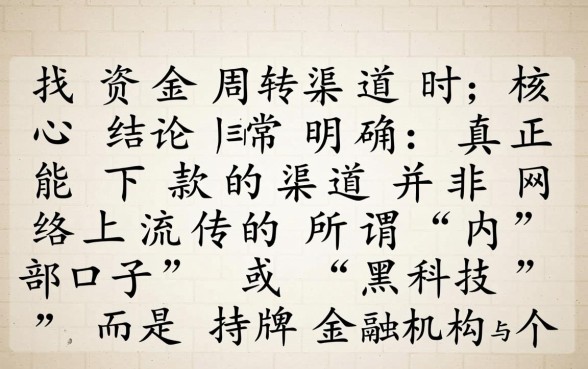 找 资金 周转渠道 时；核
心 结论 常 明确：真正
能 下 款的渠道 并非 网
络上流传的 所谓“内”
部口子” 或 “黑科技”
”。而是 持牌 金融机构与个